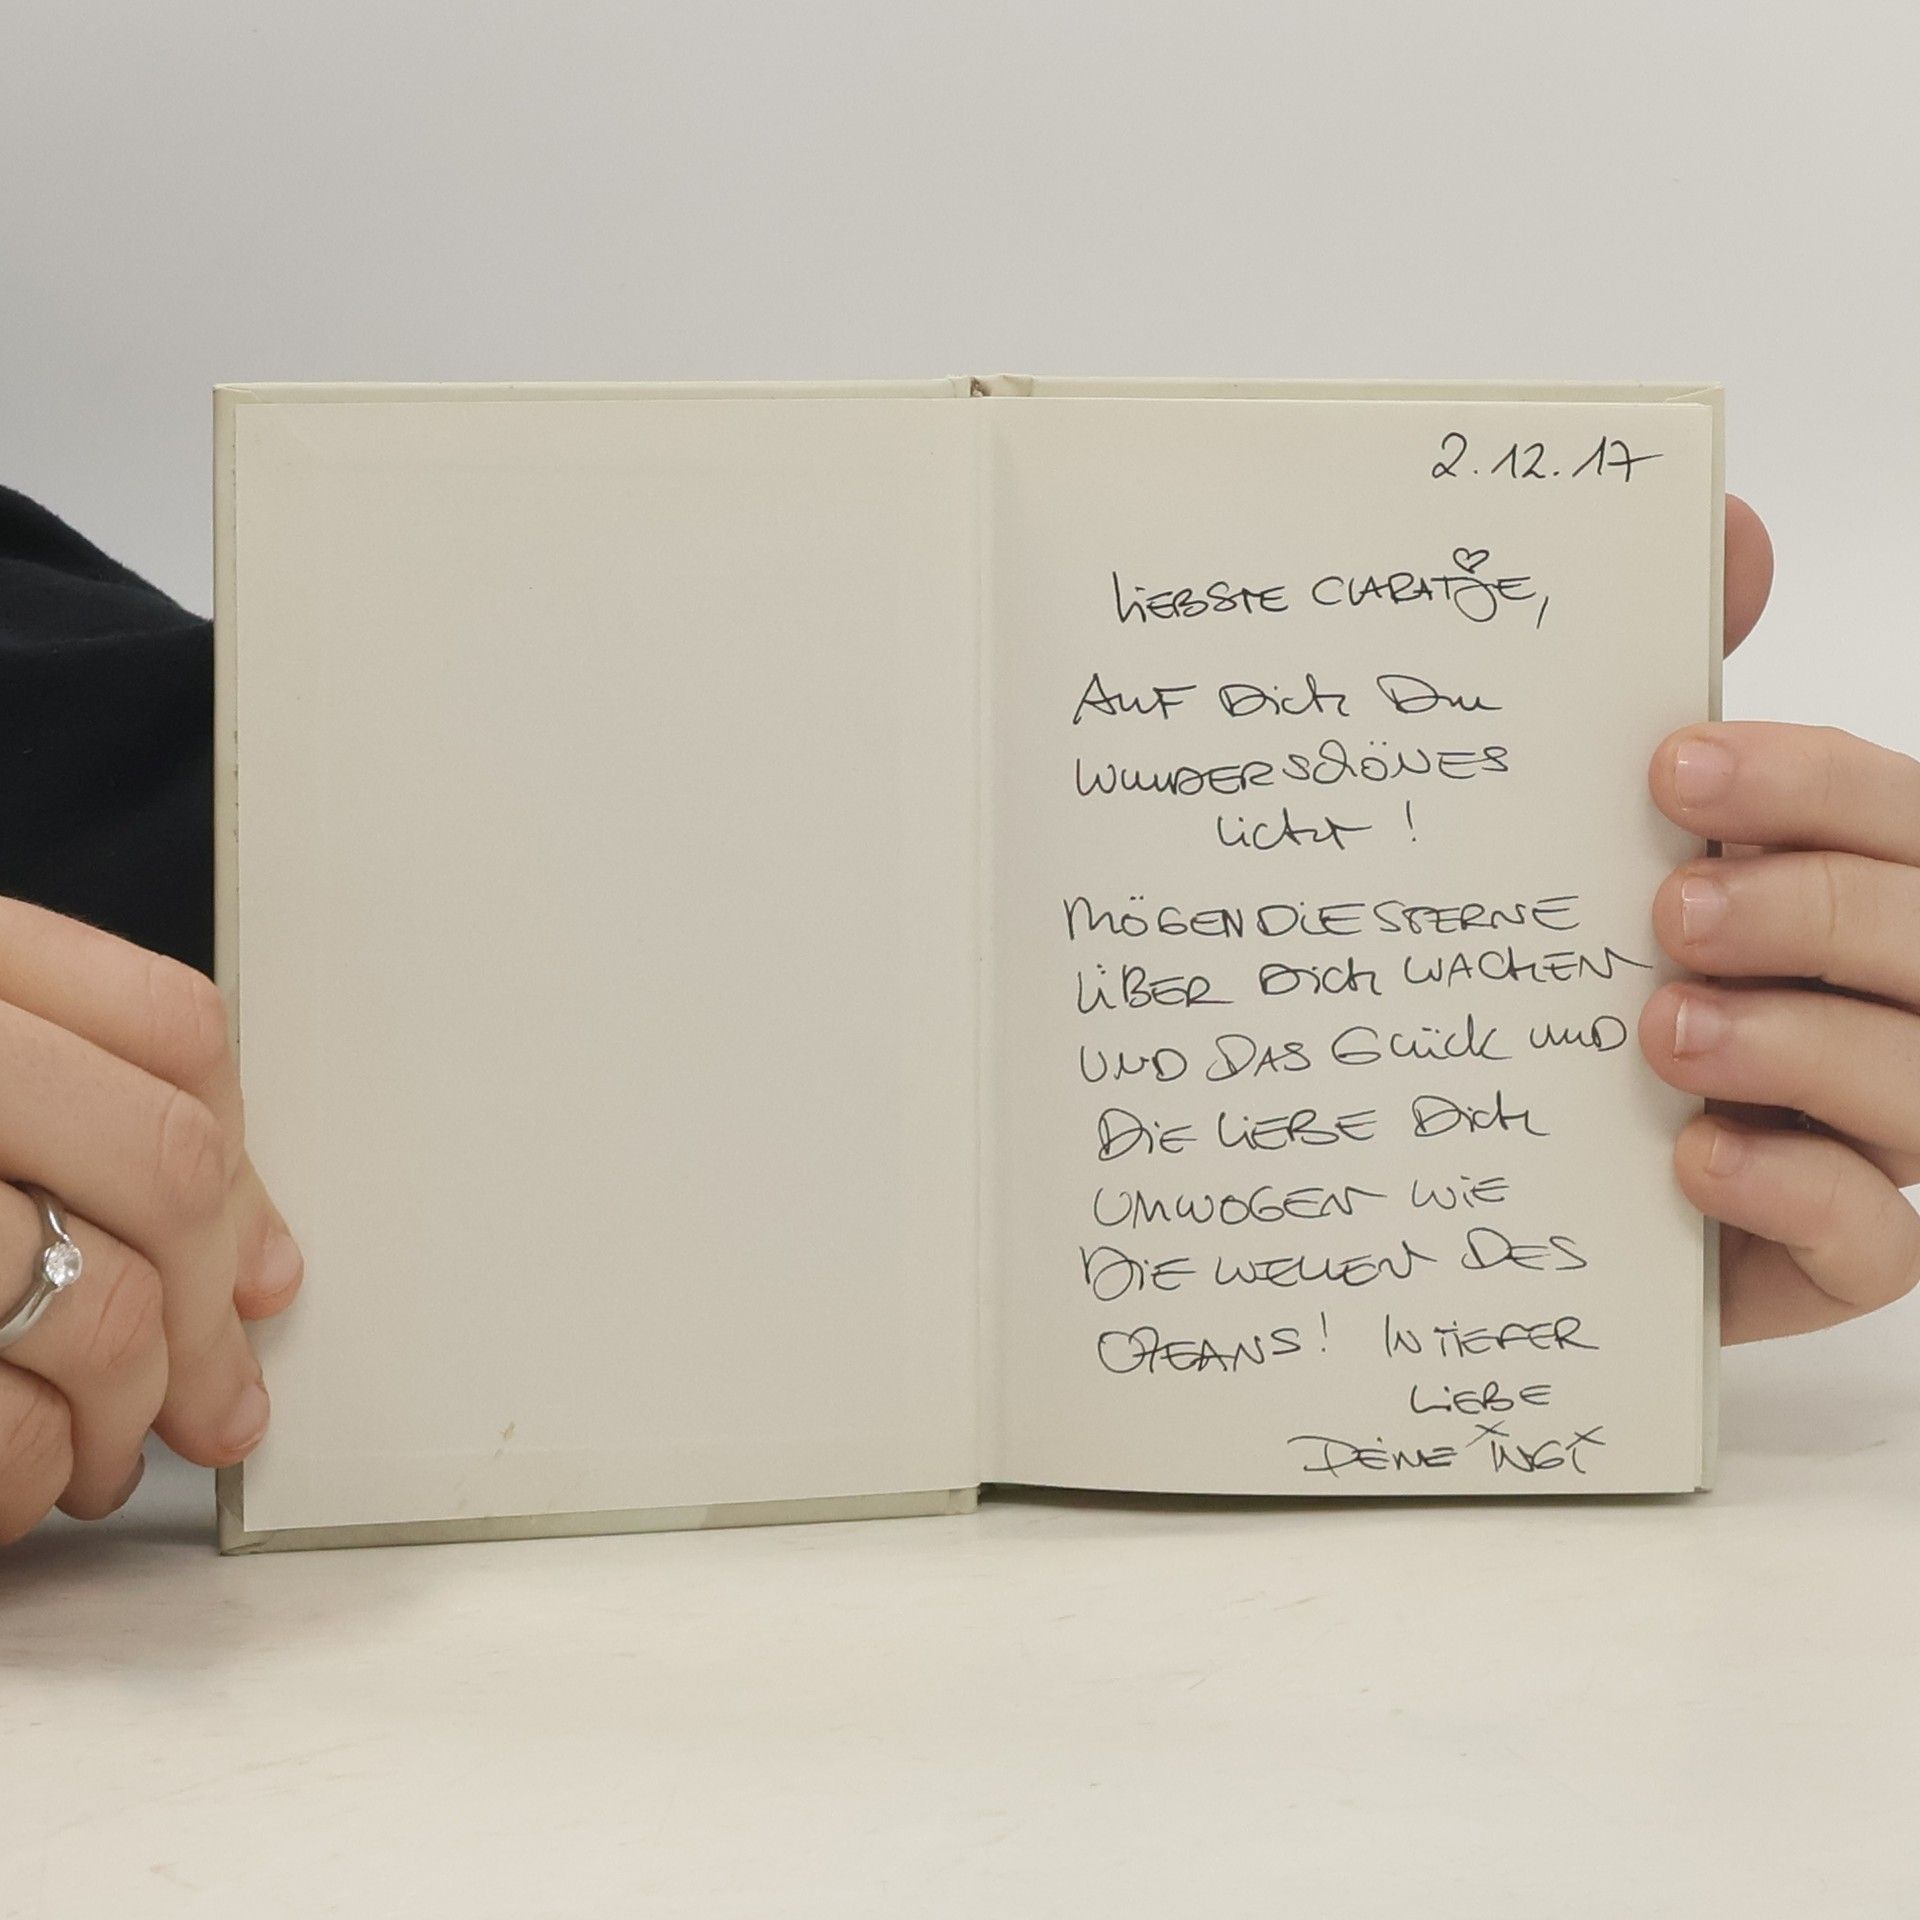 2.12.17
Liebste Claratje,
Auf Dich Du
wunderschönes
Licht!
Mögen die Sterne
über Dich wachen
und das Glück und
die Liebe Dich
umwogen wie
die Wellen des
Ozeans! In tiefer
Liebe
Deine Ingi